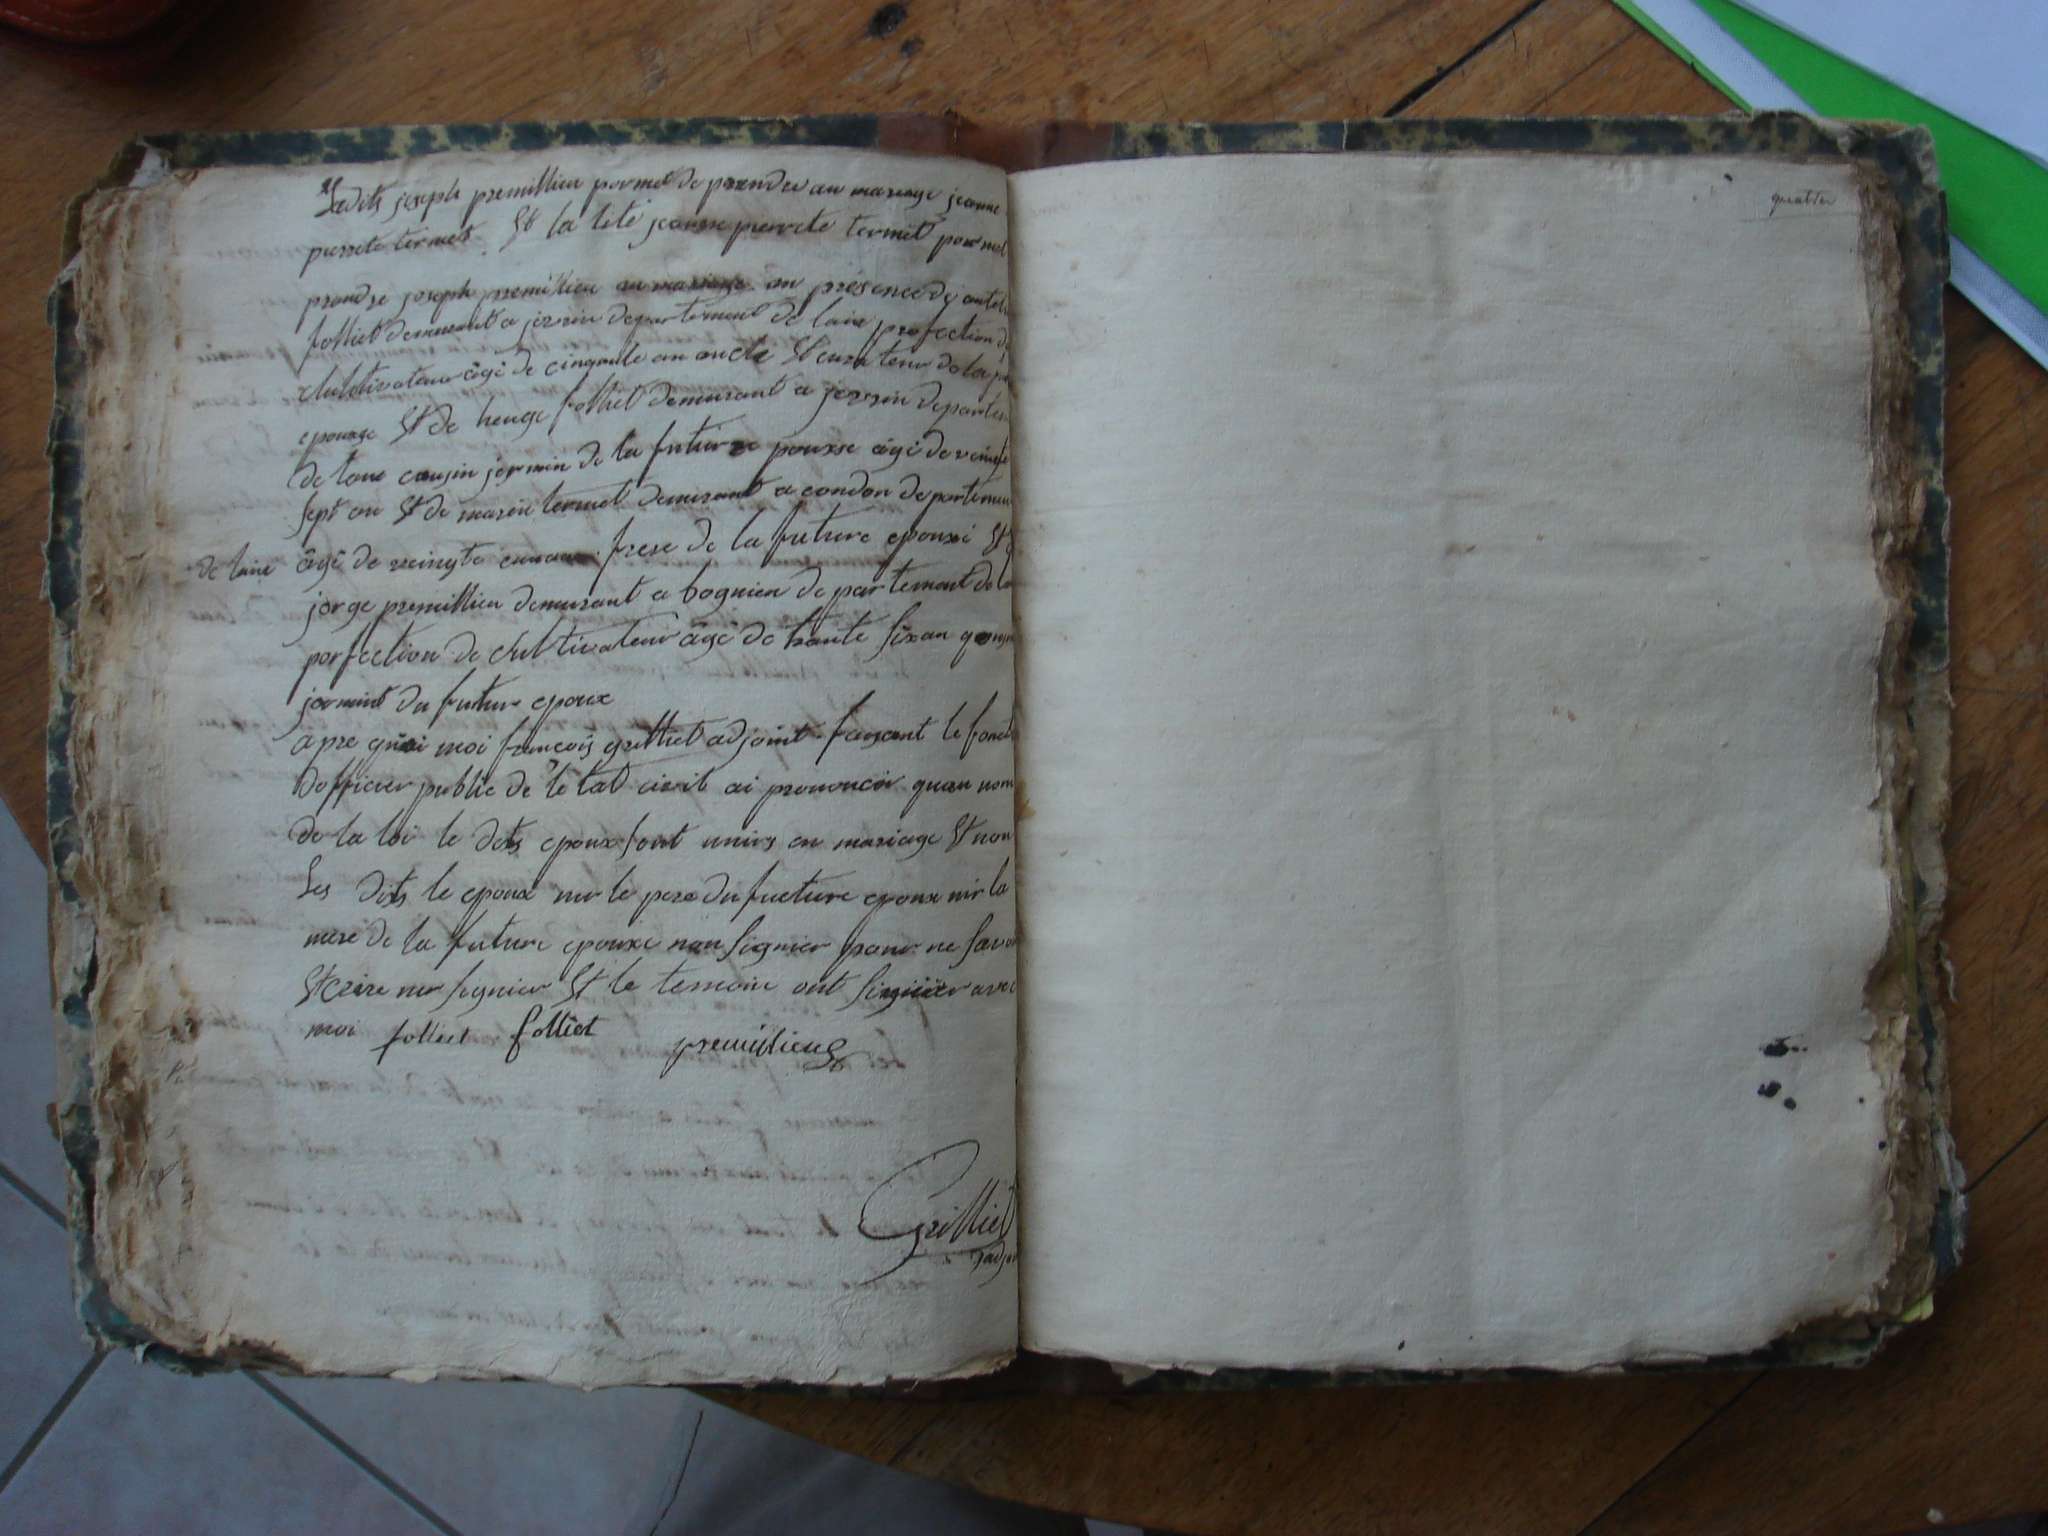 Ledits joseph premillieu permet de prendre au mariage jeanne
pierrete termet St la tité jeanne pierrete termet permet
prendre joseph premillieu au mariage an présence de
folliet demurant a jezrin departement de lain profection de
chultivateur âgé de cinqante an oncle St curateur de la
epouxe St de heuge folliet demurant a jezrin departem
de lain cousin jermin de la future epouxse âgé de veingte
sept an St de marin termet demurant a condon departemen
de lain âgé de veingte frere de la future epouxe St
jorge premillieu demurant a bognien de partement de
porfection de chultivateur âgé de trante six an
jermint du future epoux
apre quoi moi francois grilliet adjoint faisant le fonct
dofficier public de le tat civil ai prononcér quau nom
de la loi le dets epoux sont unirs en mariage St non
Les dits le epoux nir le pere du fucture epoux nir la
mere de la future epouxe non signier pour ne savoi
St crire ner signier St le temoin ont signier avec
moi folliet folliet premillieu
Grilliet
adjoi